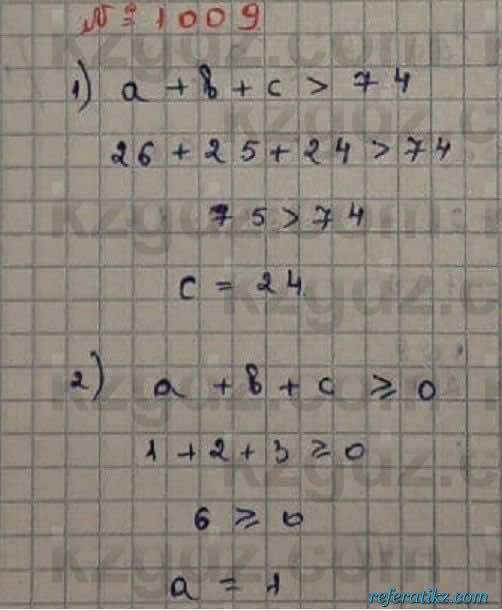 № 1009
1) a + b + c > 74
26 + 25 + 24 > 74
75 > 74
c = 24
2) a + b + c ≥ 0
1 + 2 + 3 ≥ 0
6 ≥ 0
a = 1
referatikz.com